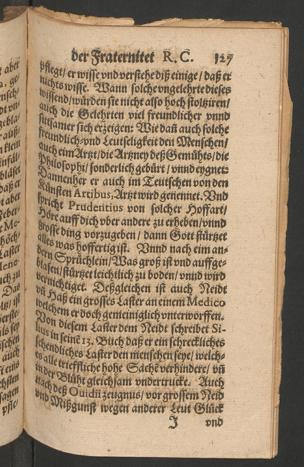 der Fraternitet R. C. 127
pflegt/ er wisse vnd verstehe diß einige/ daß er
nichts wisse. Wann solche vngelehrte dieses
wissend/ würden sie nicht also hoch stoltziren/
auch die Gelehrten viel freundlicher vnnd
sittsamer sich erzeigen: Wie dañ auch solche
freundlich⸗ vnd Leutseligkeit den Menschen/
auch eim Artzt/ die Artzney deß Gemühts/ die
Philosophi/ sonderlich gebürt/ vnnd eygnet:
Dannenher er auch im Teutschen von den
Künsten Artibus, Artzt wird genennet. Vnd
spricht Prudentius von solcher Hoffart/
Höre auff dich vber andere zu erheben/ vnnd
grosse ding vorzugeben/ dann Gott stürtzet
alles was hoffertig ist. Vnnd nach eim an⸗
dern Sprüchlein/ Was groß ist vnd auffge⸗
blasen/ stürtzet leichtlich zu boden/ vnnd wird
vernichtiget. Deßgleichen ist auch Neidt
vñ Haß ein grosses Laster an einem Medico
welchem er doch gemeiniglich vnterworffen.
Von diesem Laster dem Neidt schreibet Si⸗
lius in seinē 13. Buch daß er ein schreckliches
schendliches Laster den menschen seye/ welch⸗
es alle treffliche hohe Sachē verhindere/ vñ
in der Blüht gleichsam vndertrucke. Auch
nach deß Ouidii zeugnus/ vor grossem Neid
vnd Mißgunst wegen anderer Leut Glück
I vnd